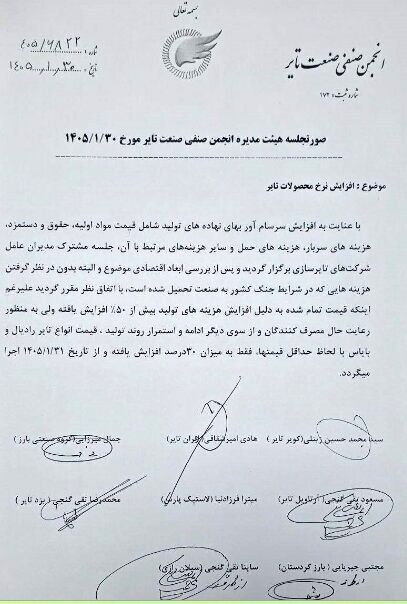 بسمه تعالی
انجمن صنفی صنعت تایر
شماره ثبت: ۱۷۲
شماره: ۴۰۵/۶۸۲۲
تاریخ: ۱۴۰۵/۱/۳۰
صورتجلسه هیئت مدیره انجمن صنفی صنعت تایر مورخ ۱۴۰۵/۱/۳۰
موضوع : افزایش نرخ محصولات تایر
با عنایت به افزایش سرسام آور بهای نهاده های تولید شامل قیمت مواد اولیه، حقوق و دستمزد،
هزینه های سربار، هزینه های حمل و سایر هزینه‌های مرتبط با آن، جلسه مشترک مدیران عامل
شرکت‌های تایرسازی برگزار گردید و پس از بررسی ابعاد اقتصادی موضوع و البته بدون در نظر گرفتن
هزینه هایی که در شرایط جنگ کشور به صنعت تحمیل شده است، با اتفاق نظر مقرر گردید علیرغم
اینکه قیمت تمام شده به دلیل افزایش هزینه های تولید بیش از ۵۰٪ افزایش یافته ولی به منظور
رعایت حال مصرف کنندگان و از سوی دیگر ادامه و استمرار روند تولید ، قیمت انواع تایر رادیال و
بایاس با لحاظ حداقل قیمتها، فقط به میزان ۳۰درصد افزایش یافته و از تاریخ ۱۴۰۵/۱/۳۱ اجرا
میگردد.
سینا محمد حسین زینلی(کویر تایر) هادی امیرسقاقی(ایران تایر) جمال میرزایی(گروه صنعتی بارز)
مسعود تقی گنجی(آرتاویل تایر) میترا فرزادنیا (لاستیک پارس) محمدرضا تقی گنجی( یزد تایر)
مجتبی جبریایی ( بارز کردستان) ساینا تقی گنجی (سبلان رازی)